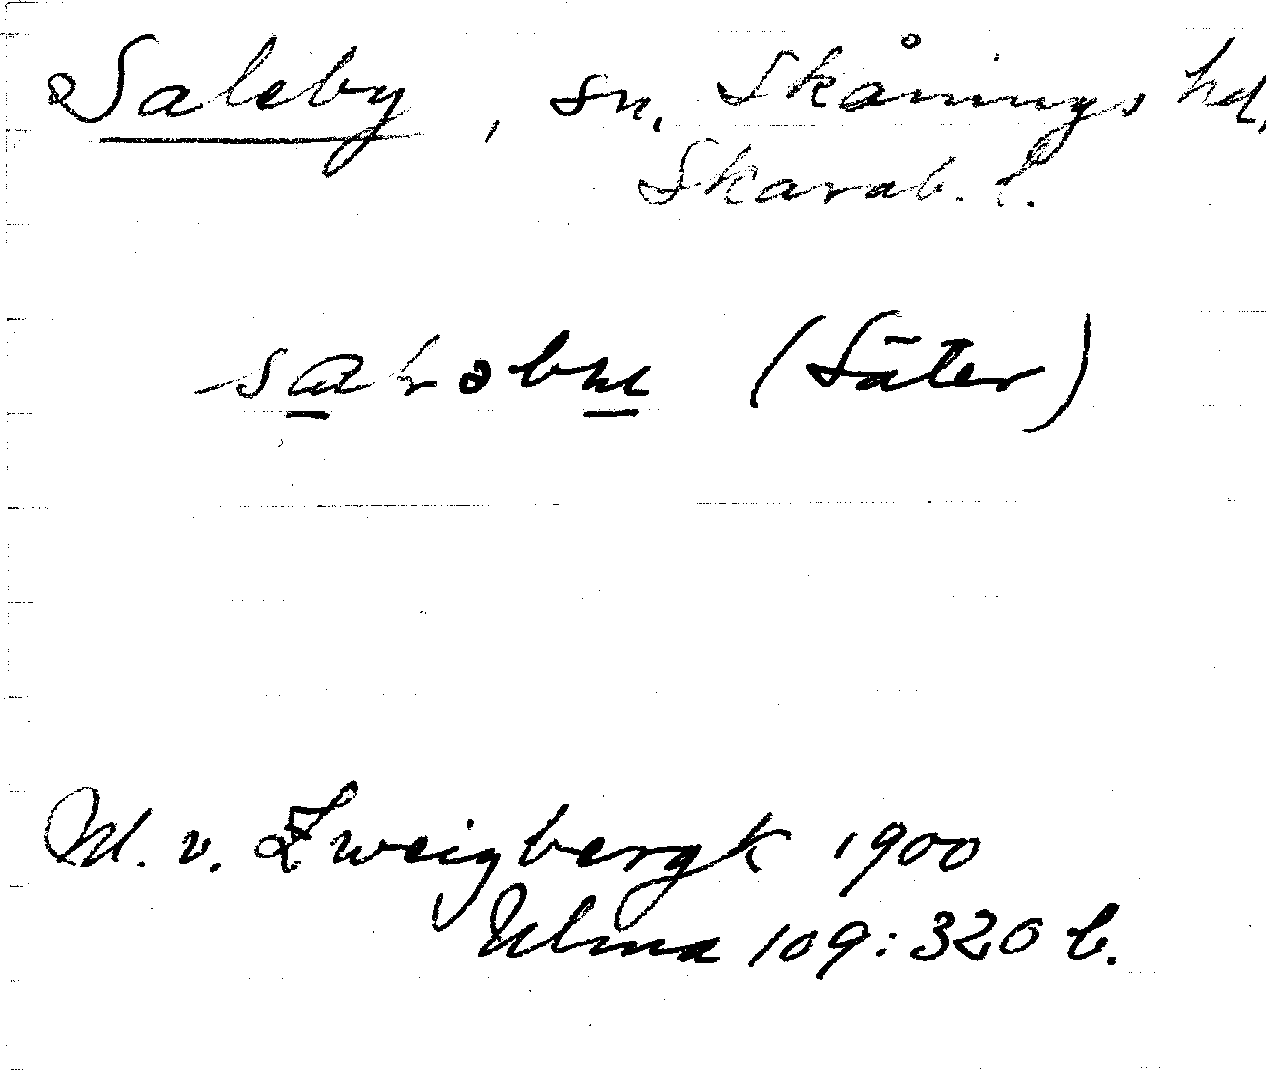 Saleby, sn, Skånings hd,
Skarab. l.
(Säter)
M. v. Zweigbergk 1900
Ulma 109:320 b.